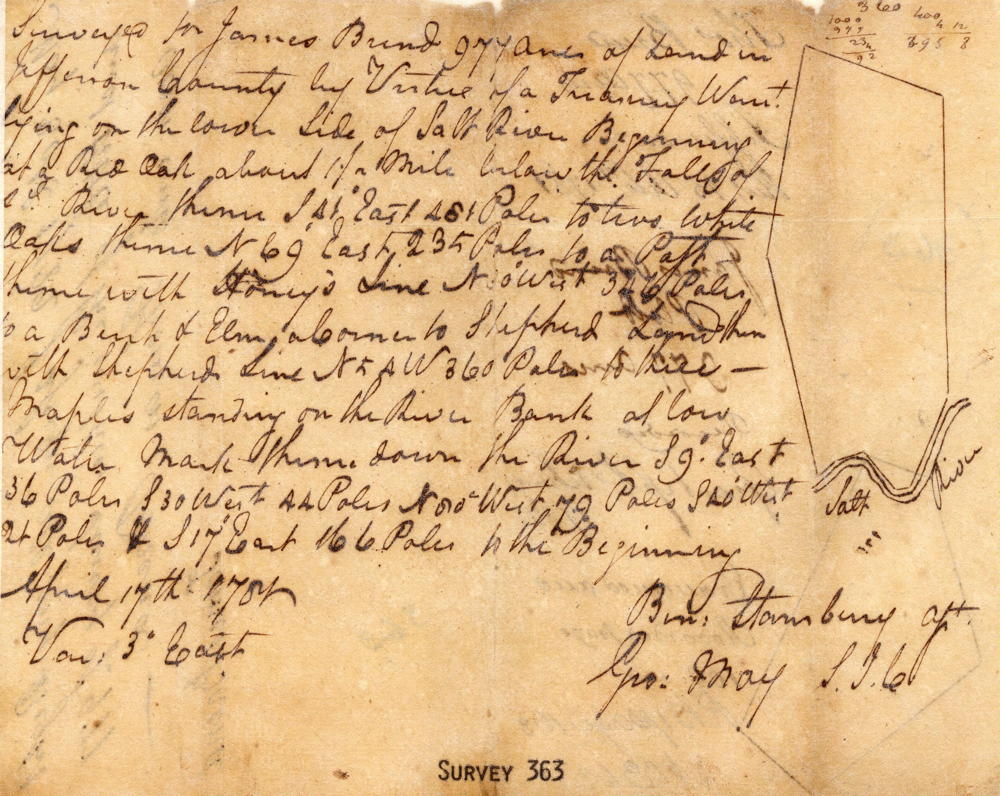 Surveyed for James Bund 977 acres of Land in
Jefferson County by Virtue of a Treasury Warrt.
lying on the lower Side of Salt River Beginning
at a Red Oak about 1/2 a Mile below the Falls of
sd. River thence S 41° East 461 Poles to two white
Oaks thence N 69° East 235 Poles to a Path
thence with Honey's Line N 10° West 326 Poles
to a Beech & Elm a Corner to Shepherd Land then
with Shepherds Line N 5 W 360 Poles to three —
Maples standing on the River Bank at low
Water Mark thence down the River S 9° East
36 Poles S 30 West 44 Poles N 80° West 79 Poles S 40° West
24 Poles & S 17° East 166 Poles to the Beginning
April 17th 1784
Var: 3° East
Ben: Stansberry asst.
Geo: May S. J. C
360
1000
977
400
4 12
695 8
Salt River
SURVEY 363